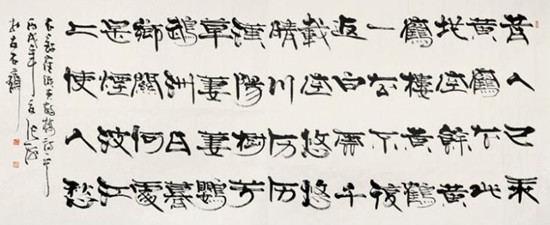 昔人已乘
黄鶴去此
地空餘黄
鶴樓黄鶴
一去不復
返白雲千
載空悠悠
晴川历历
漢陽樹芳
草萋萋鸚
鵡洲日暮
鄉關何處
是煙波江
上使人愁
崔颢黄鶴樓詩一首
丙戌年